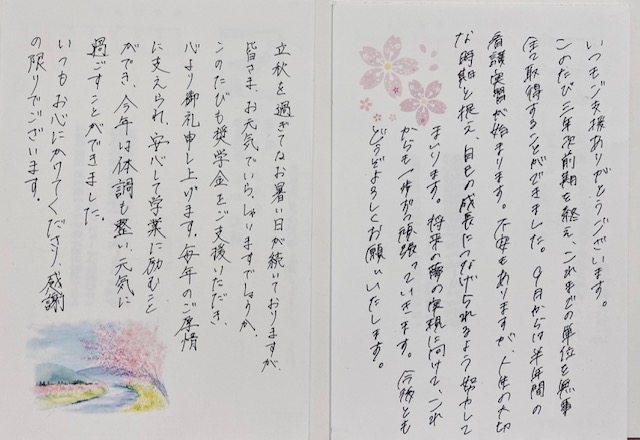 いつもご支援ありがとうございます。
このたび三年次前期を終え、これまでの単位を無事
全て取得することができました。9月からは半年間の
看護実習が始まります。不安もありますが、人生の大切
な時期と捉え、自己の成長につなげられるよう努力して
まいります。将来の夢の実現に向けて、これ
からも一歩ずつ頑張っていきます。今後とも
どうぞよろしくお願いいたします。
立秋を過ぎてなお暑い日が続いておりますが、
皆さま、お元気でいらっしゃいますでしょうか。
このたびも奨学金をご支援いただき、
心より御礼申し上げます。毎年のご厚情
に支えられ、安心して学業に励むこと
ができ、今年は体調も整い、元気に
過ごすことができました。
いつもお心にかけてくださり、感謝
の限りでございます。